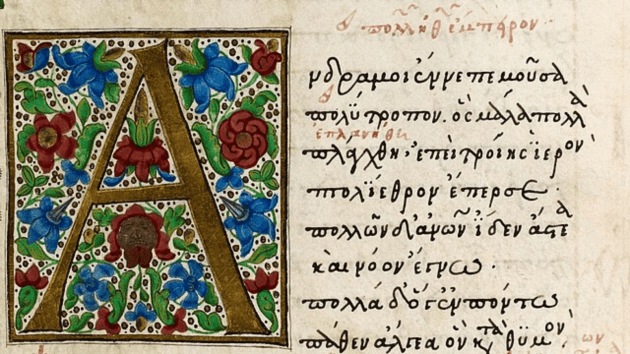 Ἄνδρα μοι ἔννεπε μοῦσα
πολύτροπον. ὃς μάλα πολλὰ
ἐπλανήθη
πλάγχθη· ἐπεὶ τροίης ἱερὸν
πτολίεθρον ἔπερσε·
πολλῶν δ' ἀνῶν ἴδεν ἄστεα
καὶ νόον ἔγνω·
πολλὰ δ' ὅγ' ἐν πόντω
πάθεν ἄλγεα ὃν κατὰ θυμὸν